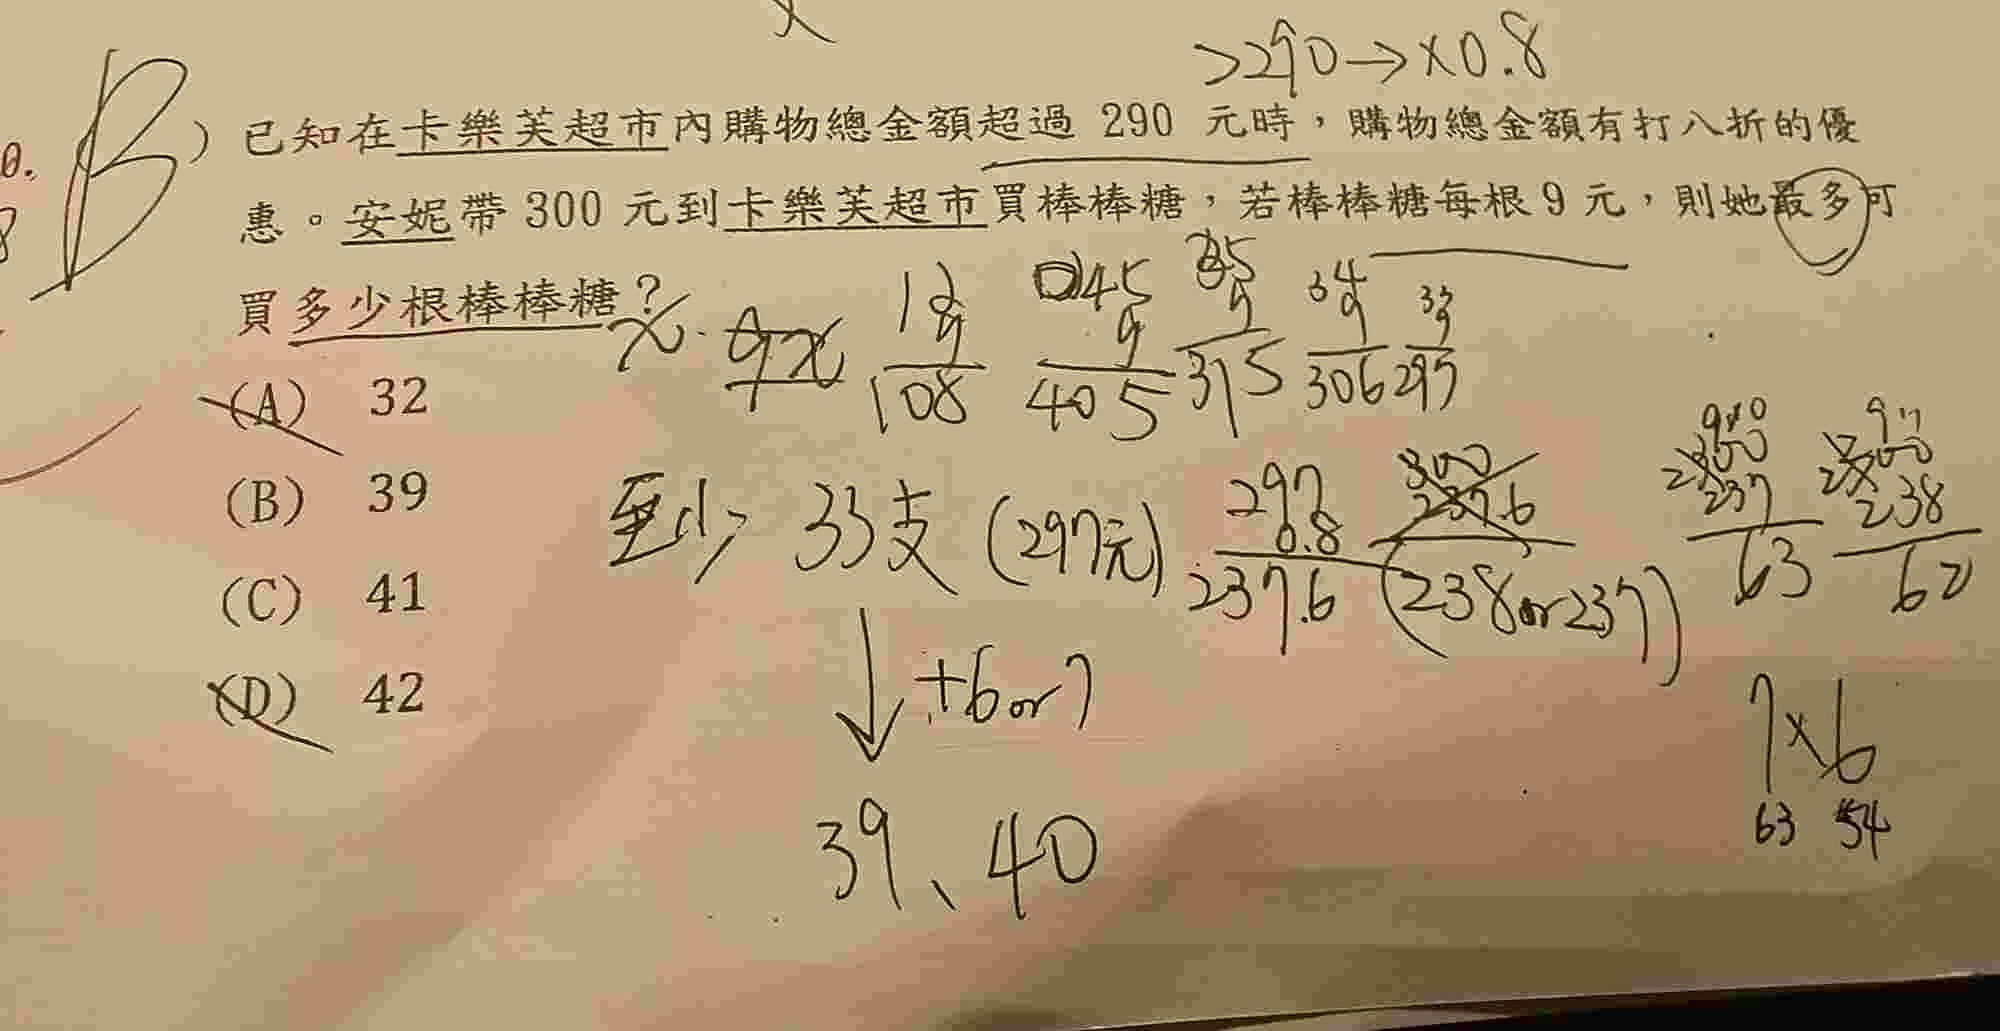 >290→×0.8
0. B ) 已知在卡樂芙超市內購物總金額超過 290 元時，購物總金額有打八折的優
惠。安妮帶 300 元到卡樂芙超市買棒棒糖，若棒棒糖每根 9 元，則她最多可
買多少根棒棒糖？
x. 9x
12
9
108
45
9
405
35
9
315
34
9
306
33
9
297
(A) 32
(B) 39
(C) 41
(D) 42
至少 33支 (297元)
297
0.8
237.6
300
237.6
(238or237)
300
237
63
300
238
62
+6or7
39、40
7×6
63 54